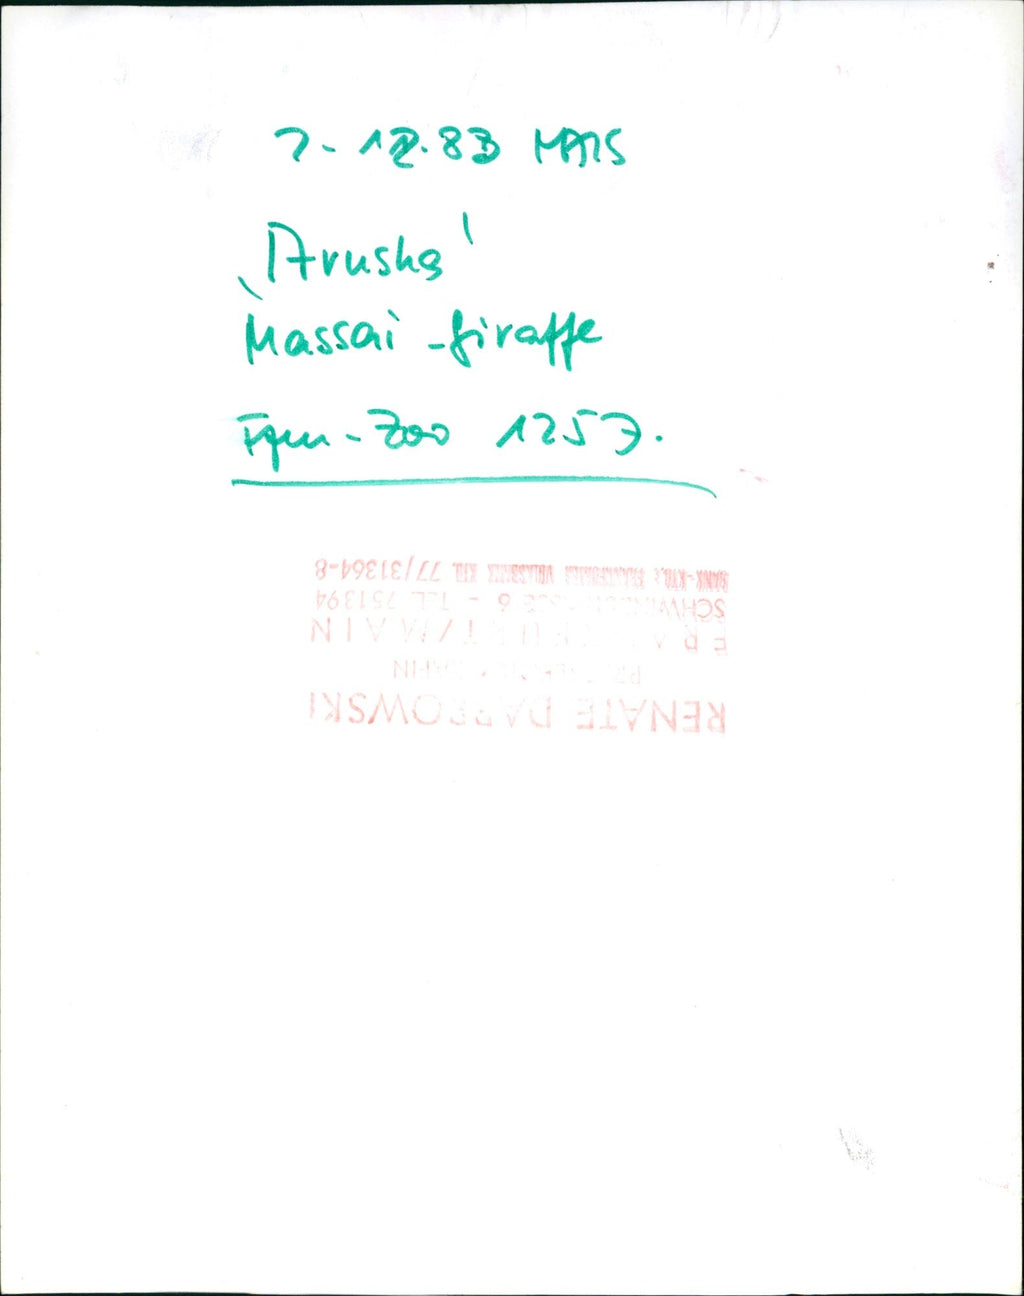 7-12.83 MAIS
‚Arusha'
Massai-Giraffe
Ffm-Zoo 1257.
RENATE DABROWSKI
FRANKFURT/MAIN
6 - TEL. 751394
BANK-KTO.: FRANKFURTER VOLKSBANK KTO. 77/31364-8